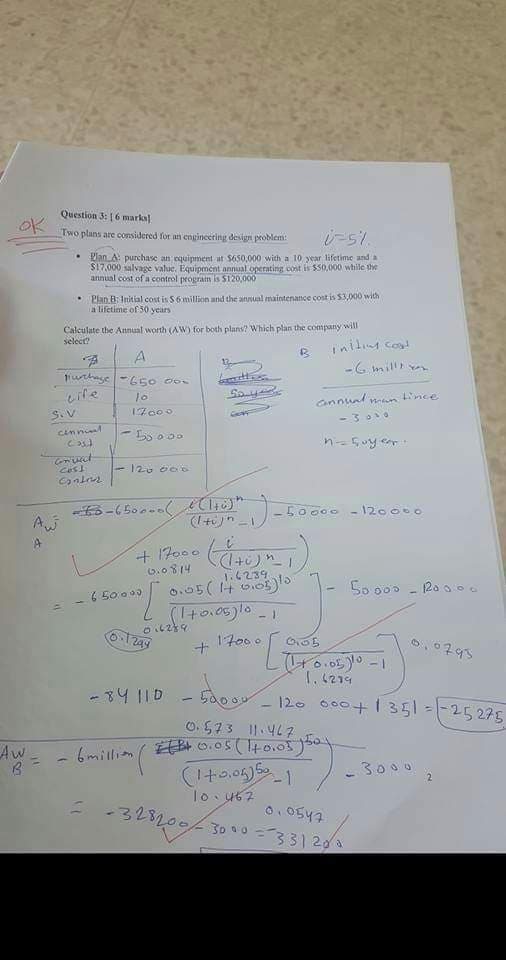 OK
Question 3: [ 6 marks]
Two plans are considered for an engineering design problem: i=5%
• Plan A: purchase an equipment at $650,000 with a 10 year lifetime and a
$17,000 salvage value. Equipment annual operating cost is $50,000 while the
annual cost of a control program is $120,000
• Plan B: Initial cost is $ 6 million and the annual maintenance cost is $3,000 with
a lifetime of 50 years
Calculate the Annual worth (AW) for both plans? Which plan the company will
select?
A
Purchase -650 000
Life 10
S.V 17000
annual cost -50000
annual cost control -120 000
B initial cost
-6 million
annual maintince
-3000
n=50year.
AW A = -650000( i(1+i)^n / (1+i)^n -1 ) -50000 -120000
+ 17000 ( i / (1+i)^n -1 )
0.0814 1.6289
= -650000 [ 0.05(1+0.05)^10 / (1+0.05)^10 -1 ] - 50000 - 120000
0.6289
0.1294 + 17000 [ 0.05 / (1+0.05)^10 -1 ] 0.0795
1.6289
-84110 - 50000 - 120 000 + 1351 = -25275
0.573 11.467
AW B = - 6million ( 0.05(1+0.05)^50 / (1+0.05)^50 -1 ) - 3000
10.467
0.0547
= -328200 - 3000 = -331200